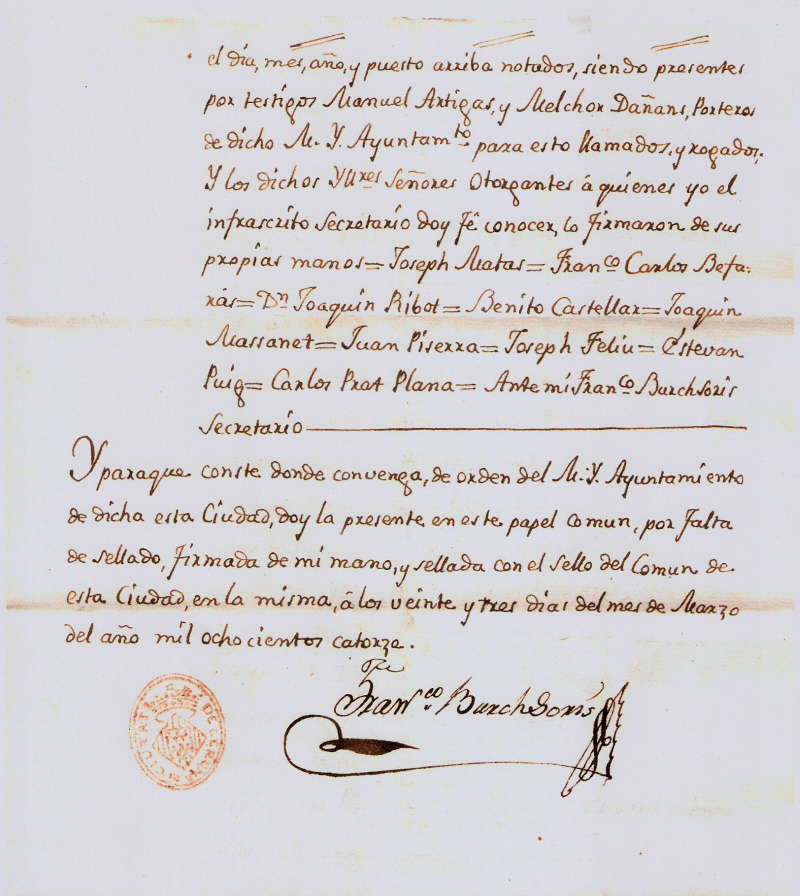 el día, mes, año, y puesto arriba notados, siendo presentes
por testigos Manuel Artigas, y Melchor Dañans, Porteros
de dicho M. Y. Ayuntamto. para esto llamados, y rogados.
Y los dichos Yllres Señores Otorgantes á quienes yo el
infrascrito Secretario doy fê conocer, lo firmaron de sus
propias manos = Joseph Matas = Franco Carlos Befa-
rás = Dn Joaquin Ribot = Benito Castellar = Joaquin
Massanet = Juan Piserra = Joseph Feliu = Estevan
Puig = Carlos Prat Plana = Ante mi Franco Burch Soris
Secretario
Y paraque conste donde convenga, de orden del M. Y. Ayuntamiento
de dicha esta Ciudad, doy la presente en este papel comun, por falta
de sellado, firmada de mi mano, y sellada con el sello del Comun de
esta Ciudad, en la misma, á los veinte y tres dias del mes de Marzo
del año mil ochocientos catorze.
Franco Burch Soris
CIUTAT DE GERON